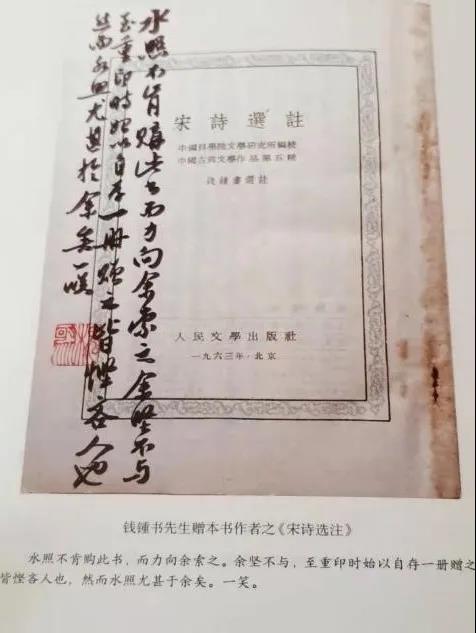 水照不肯購此书而力向余索之余堅不与
至重印時始以自存一冊贈之皆慳吝人也
然而水照尤甚於余矣一嘆
宋詩選註
中國科學院文學研究所編輯
中國古典文學作品第五種
錢鍾書選註
人民文學出版社
一九六三年·北京
钱锺书先生赠本书作者之《宋诗选注》
水照不肯购此书，而力向余索之。余坚不与，至重印时始以自存一册赠之
皆悭吝人也，然而水照尤甚于余矣。一笑。